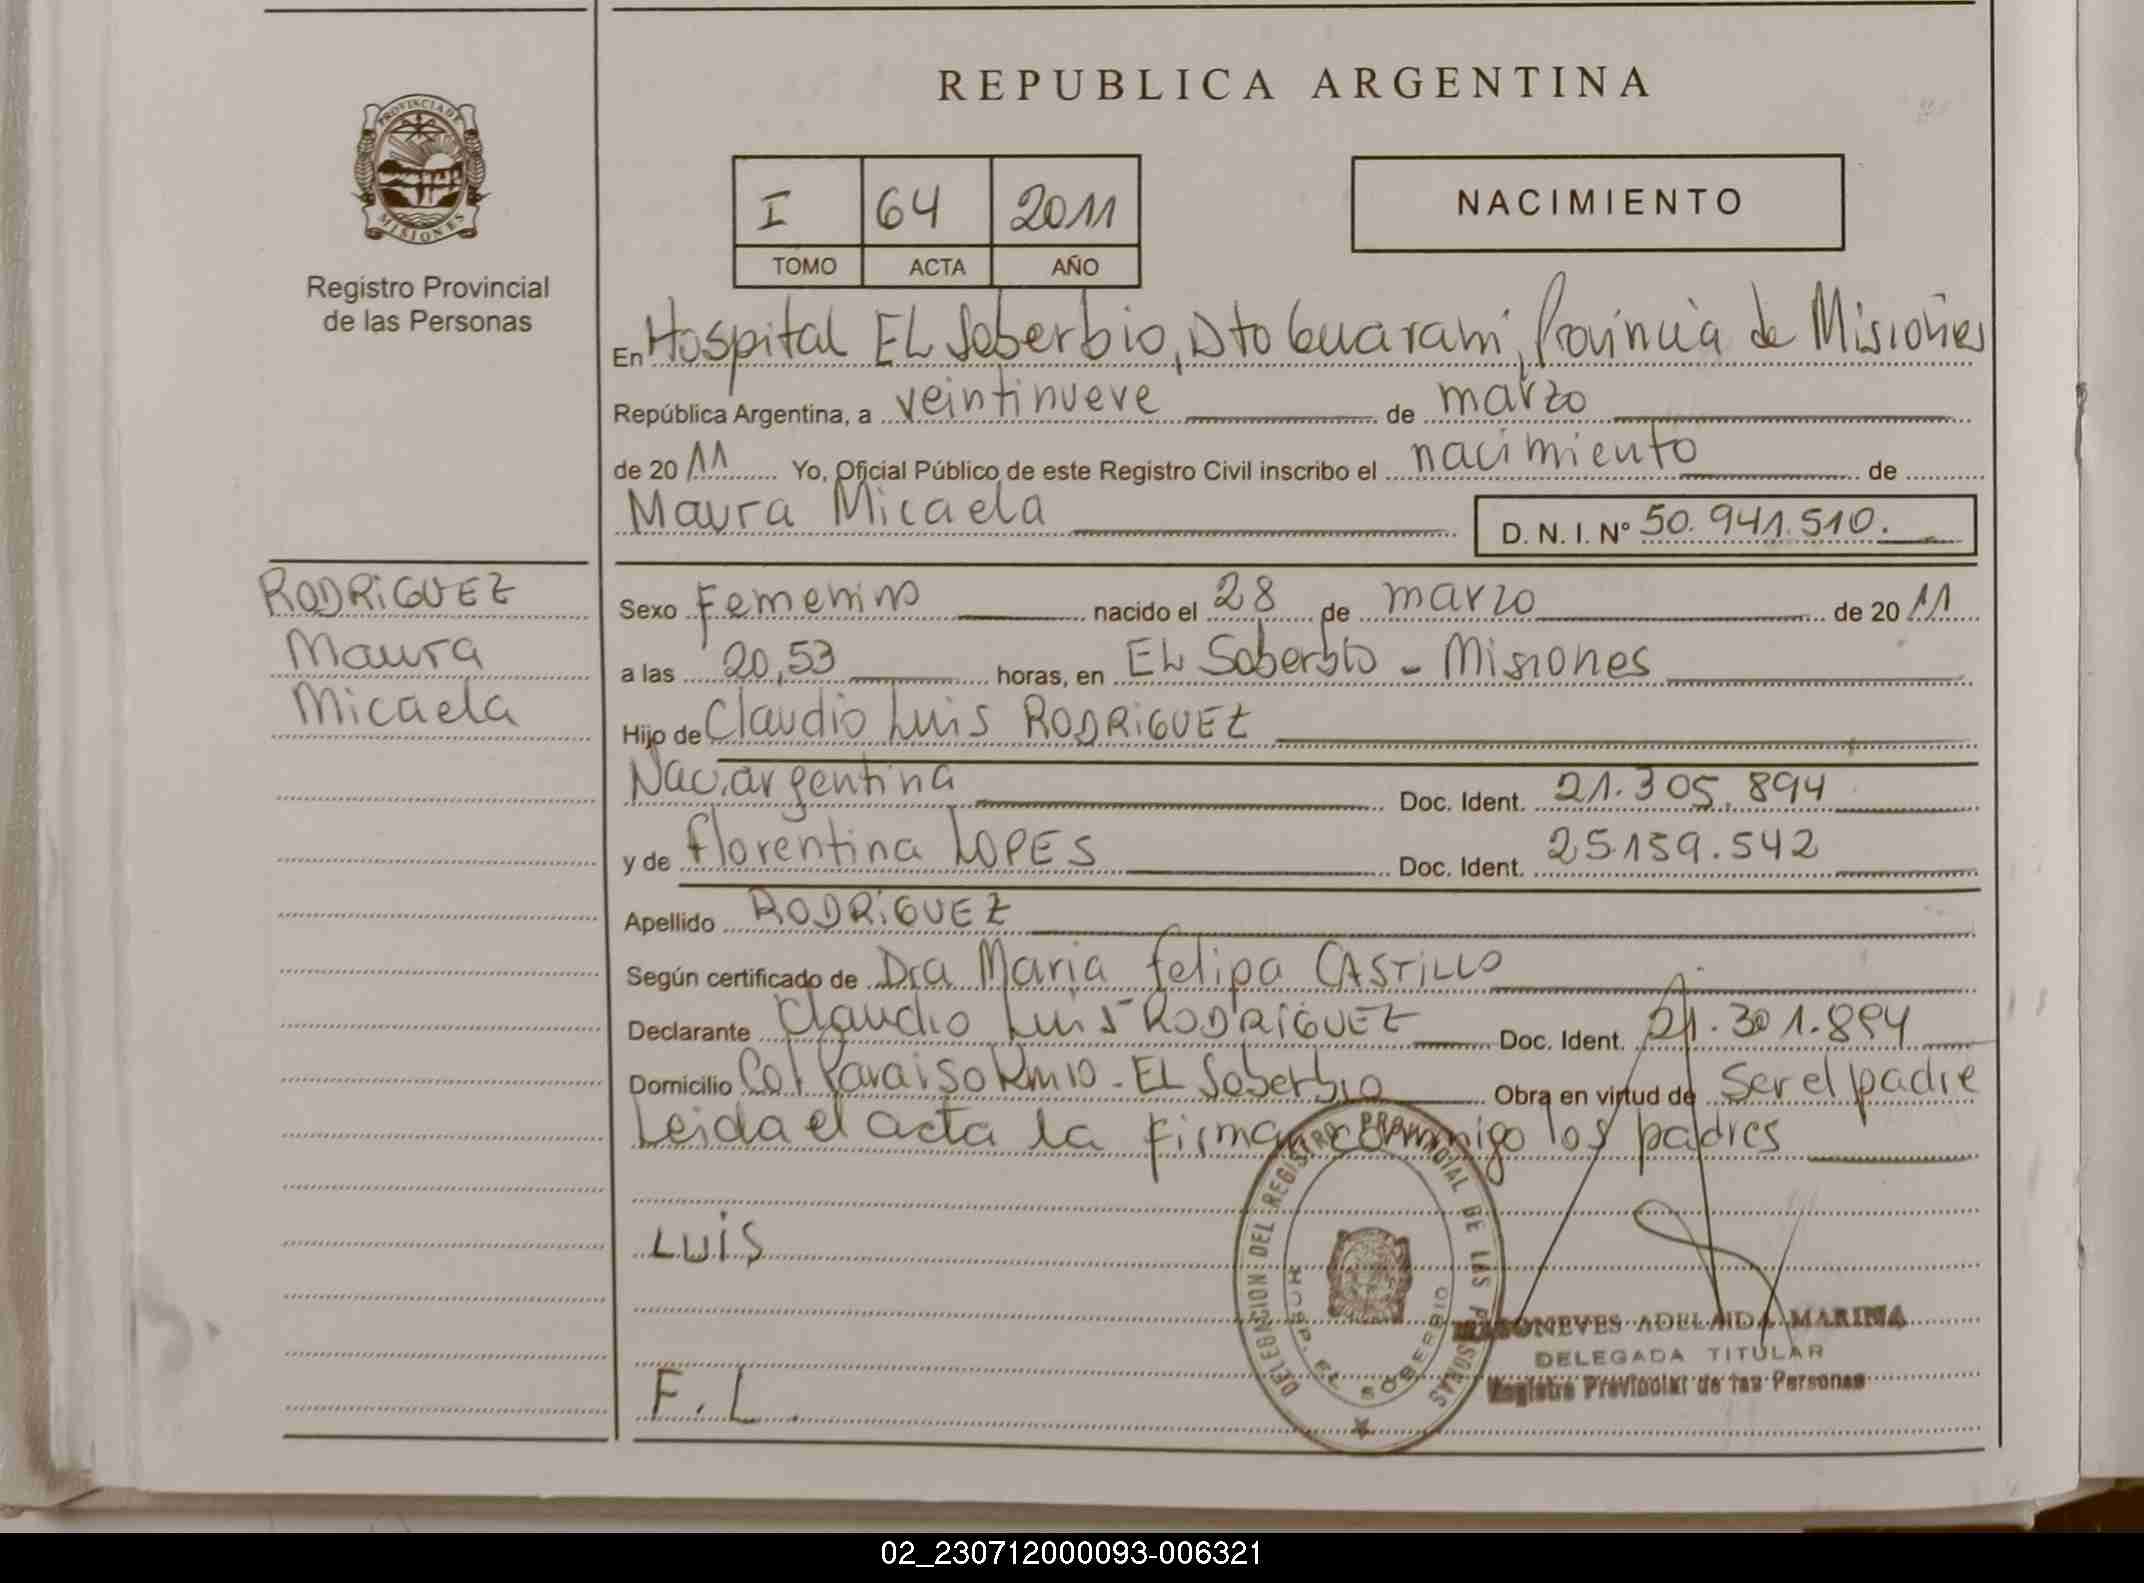 REPUBLICA ARGENTINA
PROVINCIA DE MISIONES
Registro Provincial
de las Personas
I 64 2011
TOMO ACTA AÑO
NACIMIENTO
En Hospital EL Soberbio, Dto Guarani, Provincia de Misiones
República Argentina, a veintinueve de marzo
de 20 11 Yo, Oficial Público de este Registro Civil inscribo el nacimiento de
Maura Micaela D. N. I. Nº 50.941.510.
RODRIGUEZ
Maura
Micaela
Sexo Femenino nacido el 28 de marzo de 20 11
a las 20,53 horas, en EL Soberbio - Misiones
Hijo de Claudio Luis RODRIGUEZ
Nac. argentina Doc. Ident. 21.305.894
y de Florentina LOPES Doc. Ident. 25.159.542
Apellido RODRIGUEZ
Según certificado de Dra Maria Felipa CASTILLO
Declarante Claudio Luis RODRIGUEZ Doc. Ident. 21.301.894
Domicilio Col Paraiso Km 10 - EL Soberbio Obra en virtud de Ser el padre
Leida el acta la firman conmigo los padres
LUIS
F. L.
DELEGACION DEL REGISTRO PROVINCIAL DE LAS PERSONAS
HOSP. EL SOBERBIO
ADELAIDA MARINA
DELEGADA TITULAR
Registro Provincial de las Personas
02_230712000093-006321